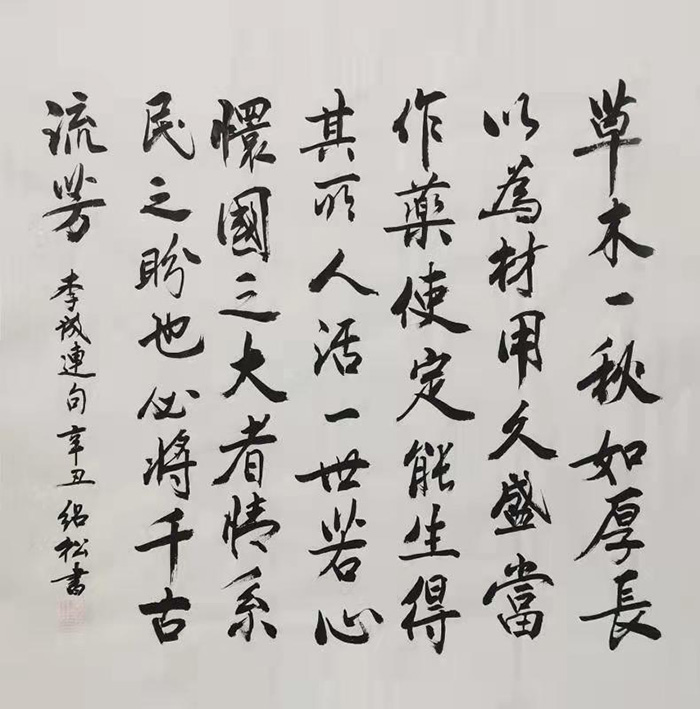 草木一秋如厚長
以為材用久盛當
作藥使定能生得
其所人活一世若心
懷國之大者情系
民之盼也必將千古
流芳
李成連句辛丑紹松書